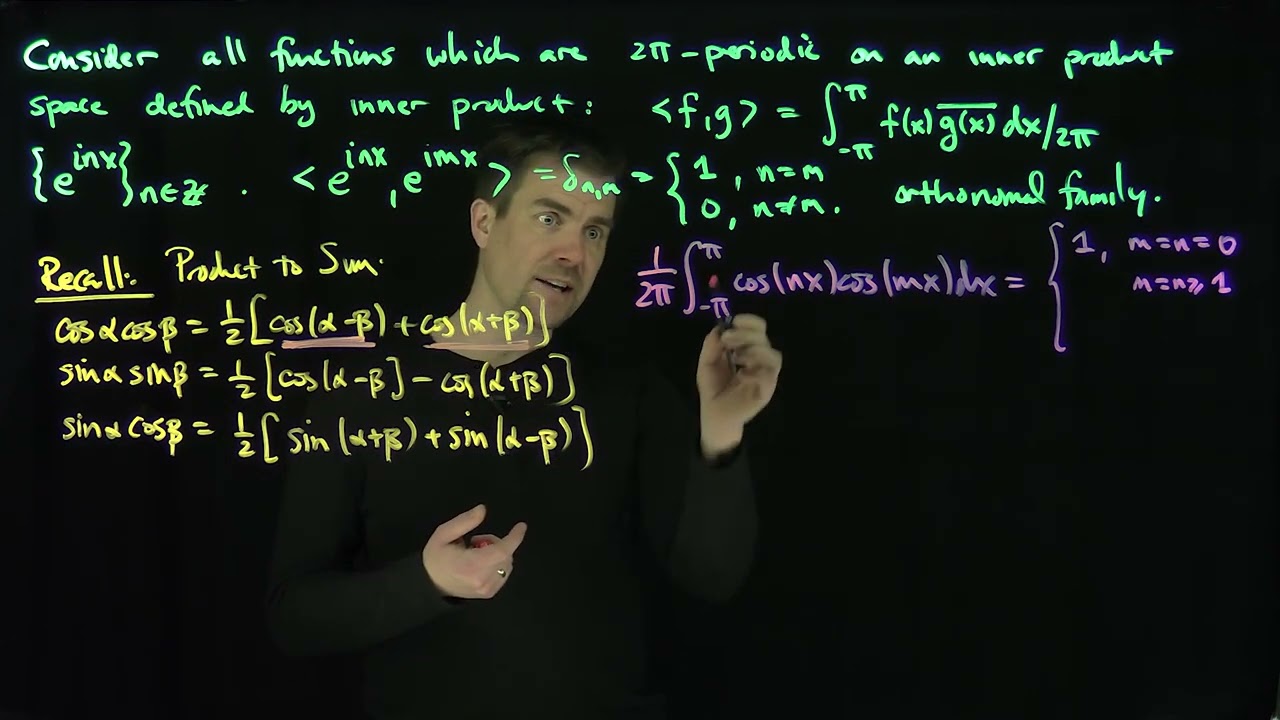 Consider all functions which are 2π-periodic on an inner product
space defined by inner product: <f,g> = ∫_{-π}^{π} f(x) \overline{g(x)} dx/2π
{e^{inx}}_{n∈ℤ}. <e^{inx}, e^{imx}> = δ_{n,m} = { 1, n=m
0, n≠m. orthonomal family.
Recall: Product to Sum.
cosαcosβ = 1/2[cos(α-β)+cos(α+β)]
sinαsinβ = 1/2[cos(α-β]-cos(α+β)]
sinαcosβ = 1/2[sin(α+β)+sin(α-β)]
1/2π ∫_{-π}^{π} cos(nx)cos(mx)dx = { 1, m=n=0
m=n≥1